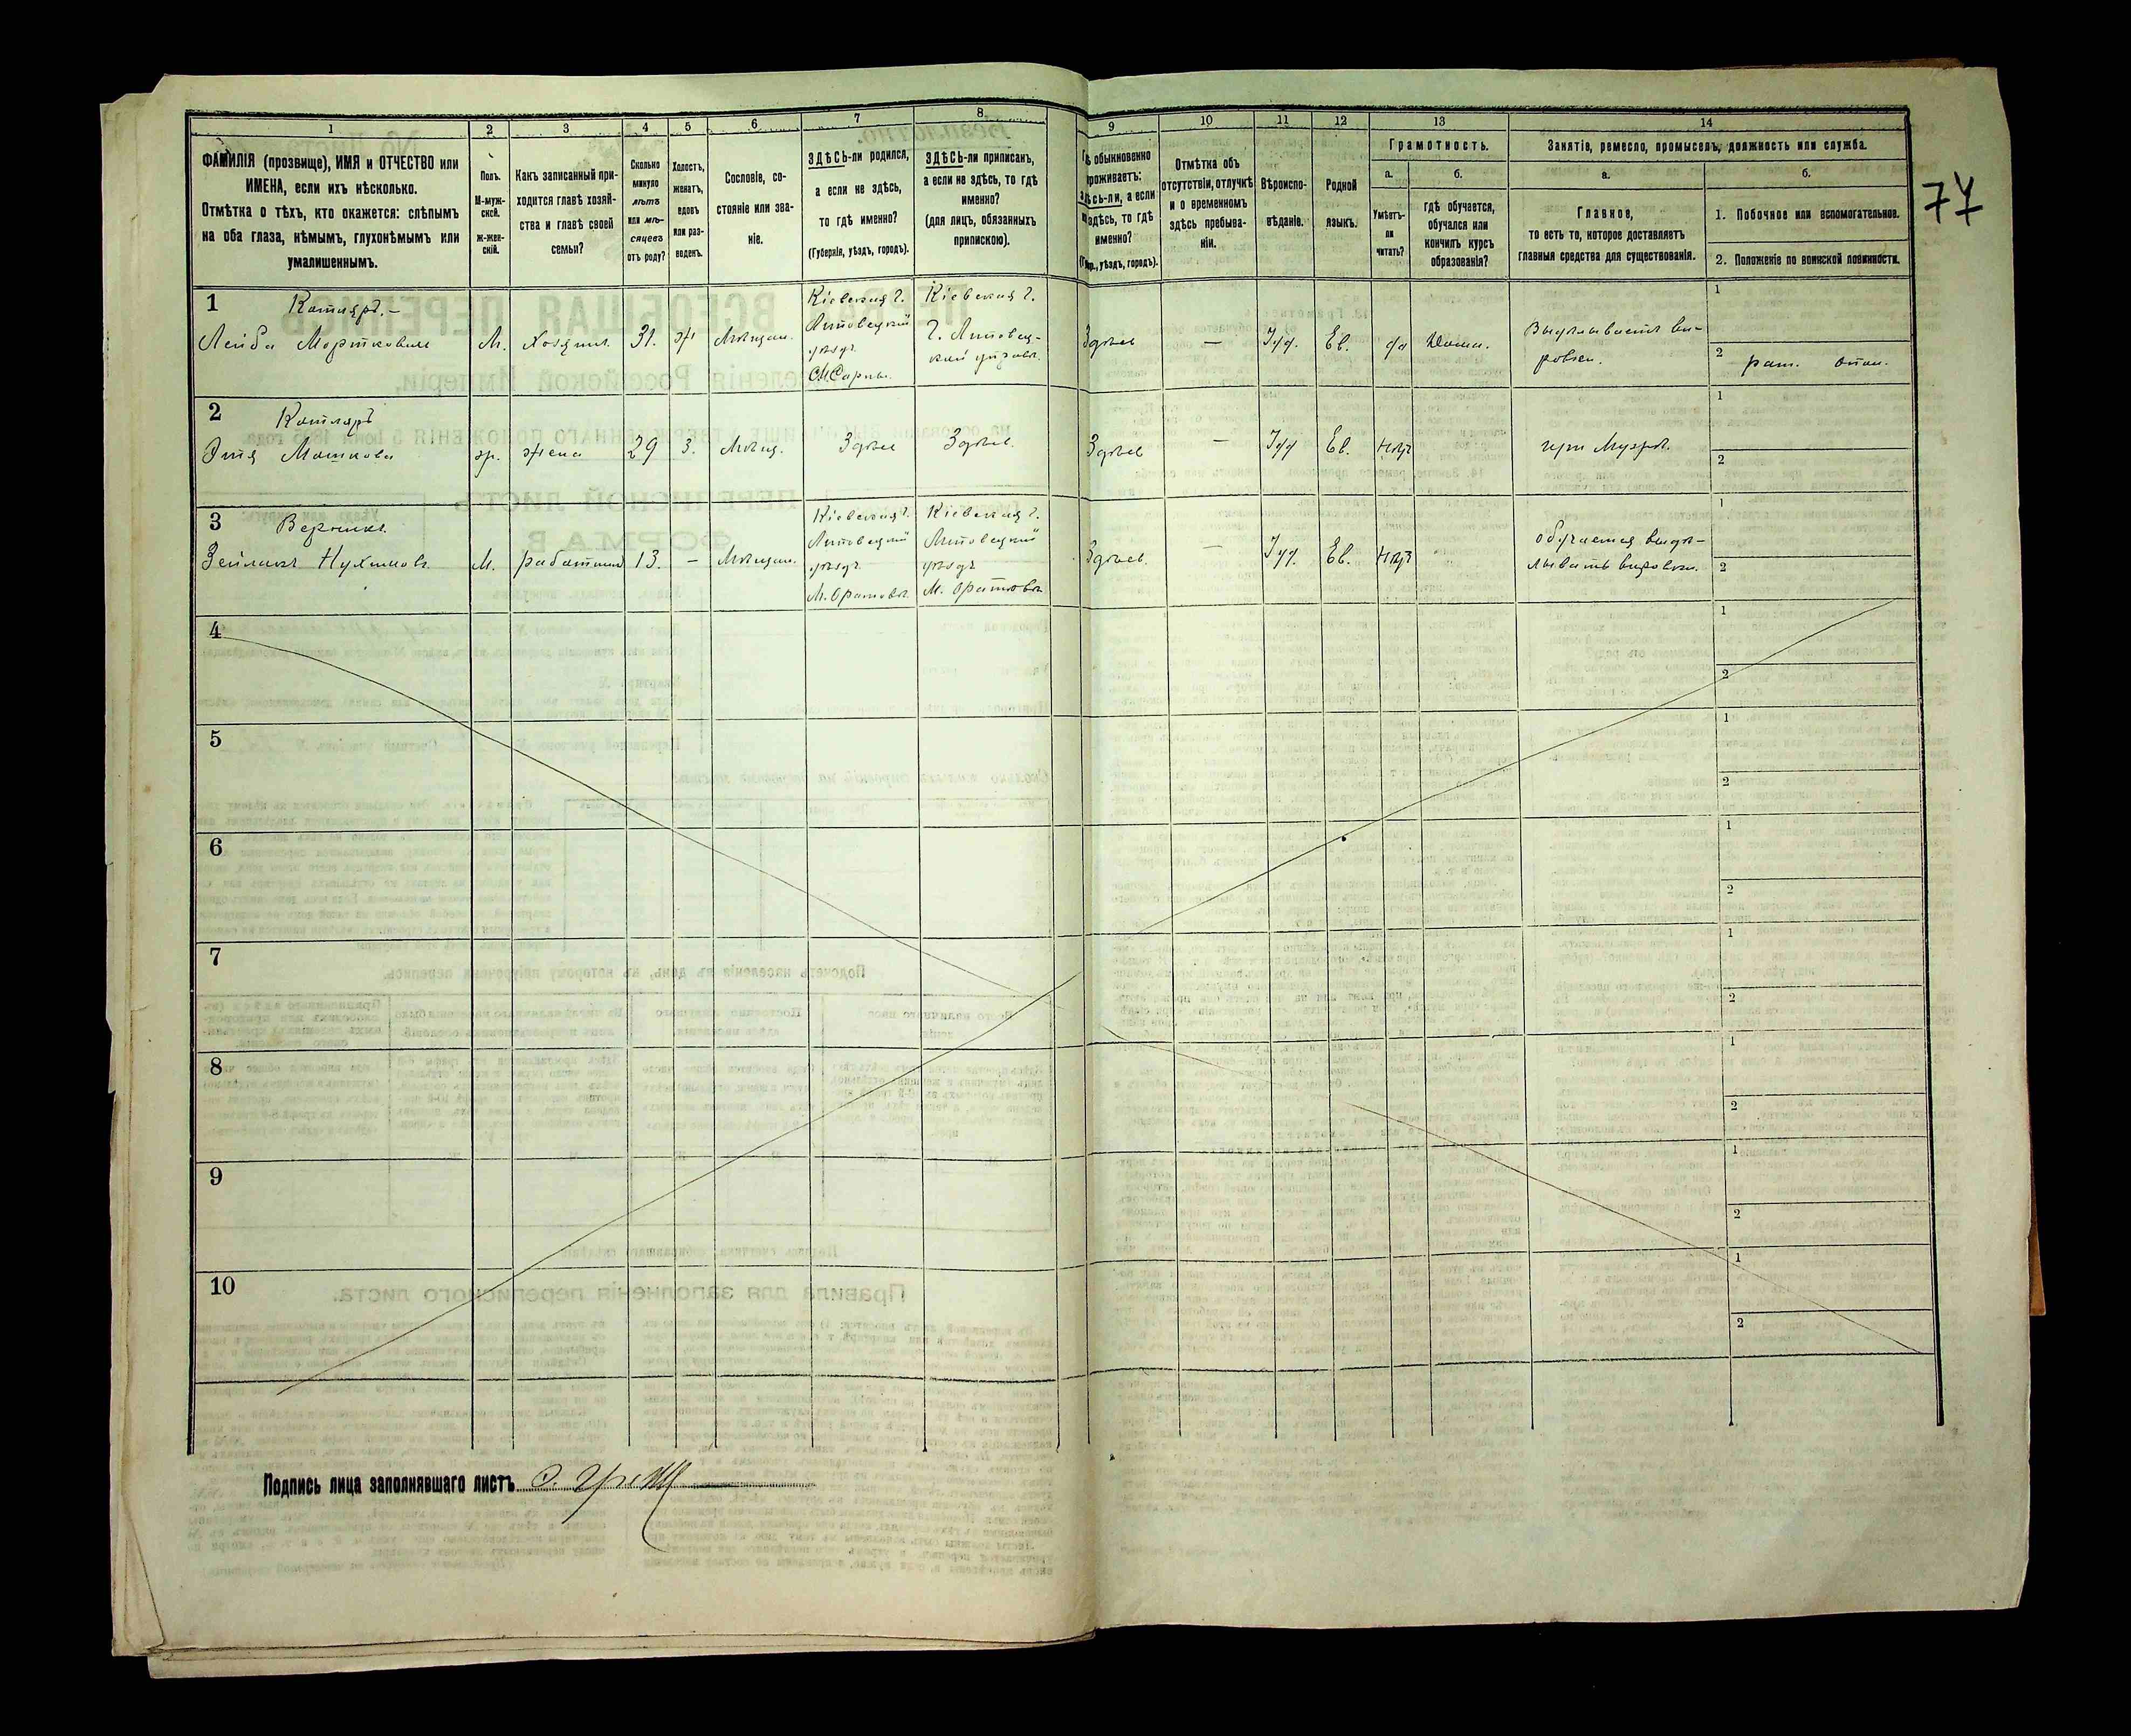 1
2
3
4
5
6
7
8
9
10
11
12
13
14
ФАМИЛІЯ (прозвище), ИМЯ и ОТЧЕСТВО или
ИМЕНА, если ихъ нѣсколько.
Отмѣтка о тѣхъ, кто окажется: слѣпымъ
на оба глаза, нѣмымъ, глухонѣмымъ или
умалишеннымъ.
Полъ.
М-муж-
ской.
ж-жен-
скій.
Какъ записанный при-
ходится главѣ хозяй-
ства и главѣ своей
семьи?
Сколько
минуло
лѣтъ
или мѣ-
сяцевъ
отъ роду?
Холостъ,
женатъ,
вдовъ
или раз-
веденъ.
Сословіе, со-
стояніе или зва-
ніе.
ЗДѢСЬ-ли родился,
а если не здѣсь,
то гдѣ именно?
(Губернія, уѣздъ, городъ).
ЗДѢСЬ-ли приписанъ,
а если не здѣсь, то гдѣ
именно?
(для лицъ, обязанныхъ
припискою).
обыкновенно
проживаетъ:
здѣсь-ли, а если
не здѣсь, то гдѣ
именно?
(Губ., уѣздъ, городъ).
Отмѣтка объ
отсутствіи, отлучкѣ
и о временномъ
здѣсь пребыва-
ніи.
Вѣроиспо-
вѣданіе.
Родной
языкъ.
Грамотность.
а.
Умѣетъ-
ли
читать?
б.
гдѣ обучается,
обучался или
кончилъ курсъ
образованія?
Занятіе, ремесло, промыселъ, должность или служба.
а.
Главное,
то есть то, которое доставляетъ
главныя средства для существованія.
б.
1. Побочное или вспомогательное.
2. Положеніе по воинской повинности.
77
1
Котляръ.-
Лейба Мортковъ
М.
Хозяинъ.
31.
ж
Мѣщан.
Кіевская г.
Липовецкій
уѣздъ
Кіевская г.
г. Липовец-
Здѣсь
—
Іуд.
Ев.
да
Дома.
1
2
2
Котляръ
Мошкова
ж.
жена
29
З.
Мѣщ.
Здѣсь
Здѣсь.
Здѣсь
—
Іуд
Ев.
нѣтъ
при Мужѣ.
1
2
3
Нухимовъ
М.
работникъ
13.
-
Мѣщан.
Кіевская г.
Липовецкій
уѣздъ
М. Оратовъ
Кіевская г.
Липовецкій
уѣздъ
М. Оратовъ
Здѣсь.
—
Іуд.
Ев.
нѣтъ
обучается выдѣ-
лывать
1
2
4
1
2
5
1
2
6
1
2
7
1
2
8
1
2
9
1
2
10
1
2
Подпись лица заполнявшаго листъ